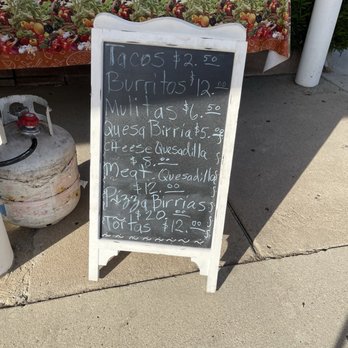 Tacos $2.50
Burritos $12.00
Mulitas $6.50
Quesa Birria $5.00
cheese Quesadilla
$8.00
Meat Quesadilla
$12.00
Pizza Birrias
$20.00
Tortas $12.00